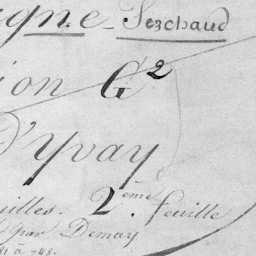 igne - Pezchaud
ion G²
D'Yvay
uilles. 2ème feuille
par Demay
81 à 48.